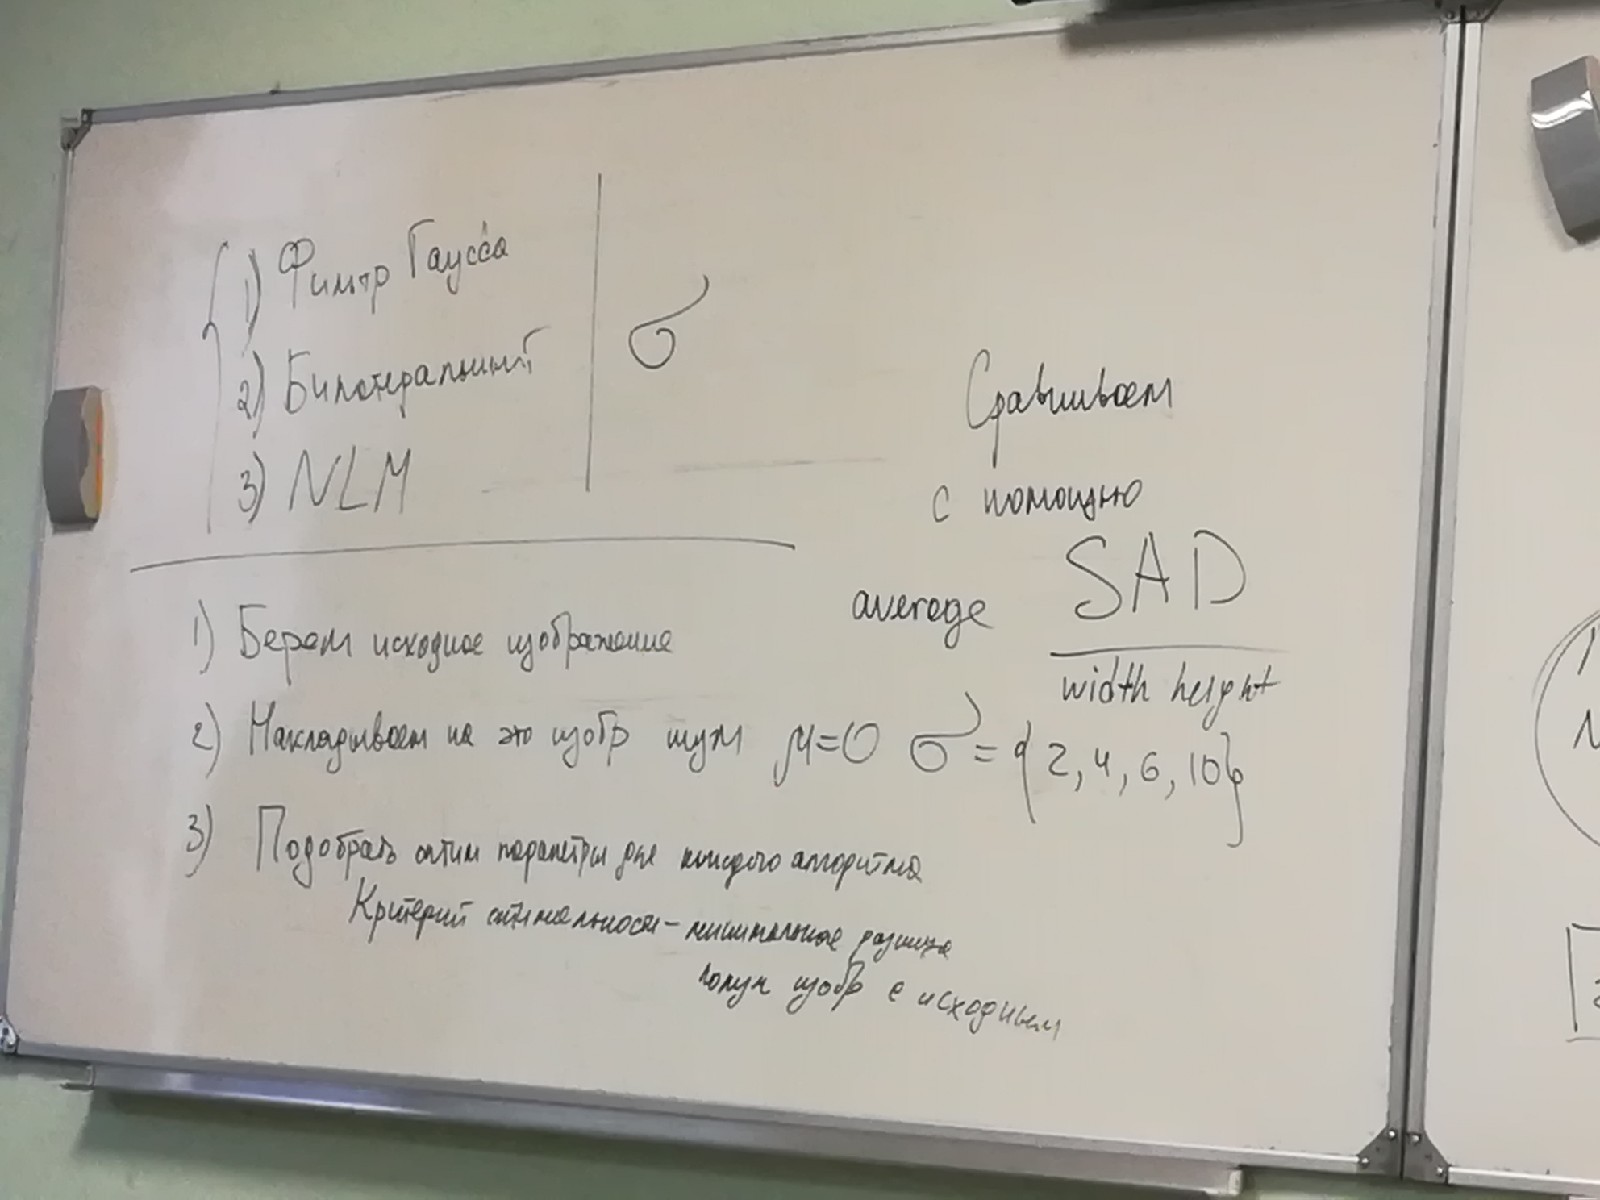 1) Фильтр Гаусса
2) Билатеральный
3) NLM
σ
Сравниваем
с помощью
average SAD
width height
1) Берем исходное изображение
2) Накладываем на это изобр шум μ=0 σ = {2, 4, 6, 10}
3) Подобрать оптим параметры для каждого алгоритма
Критерий оптимальности - минимальная разница
получ изобр с исходным